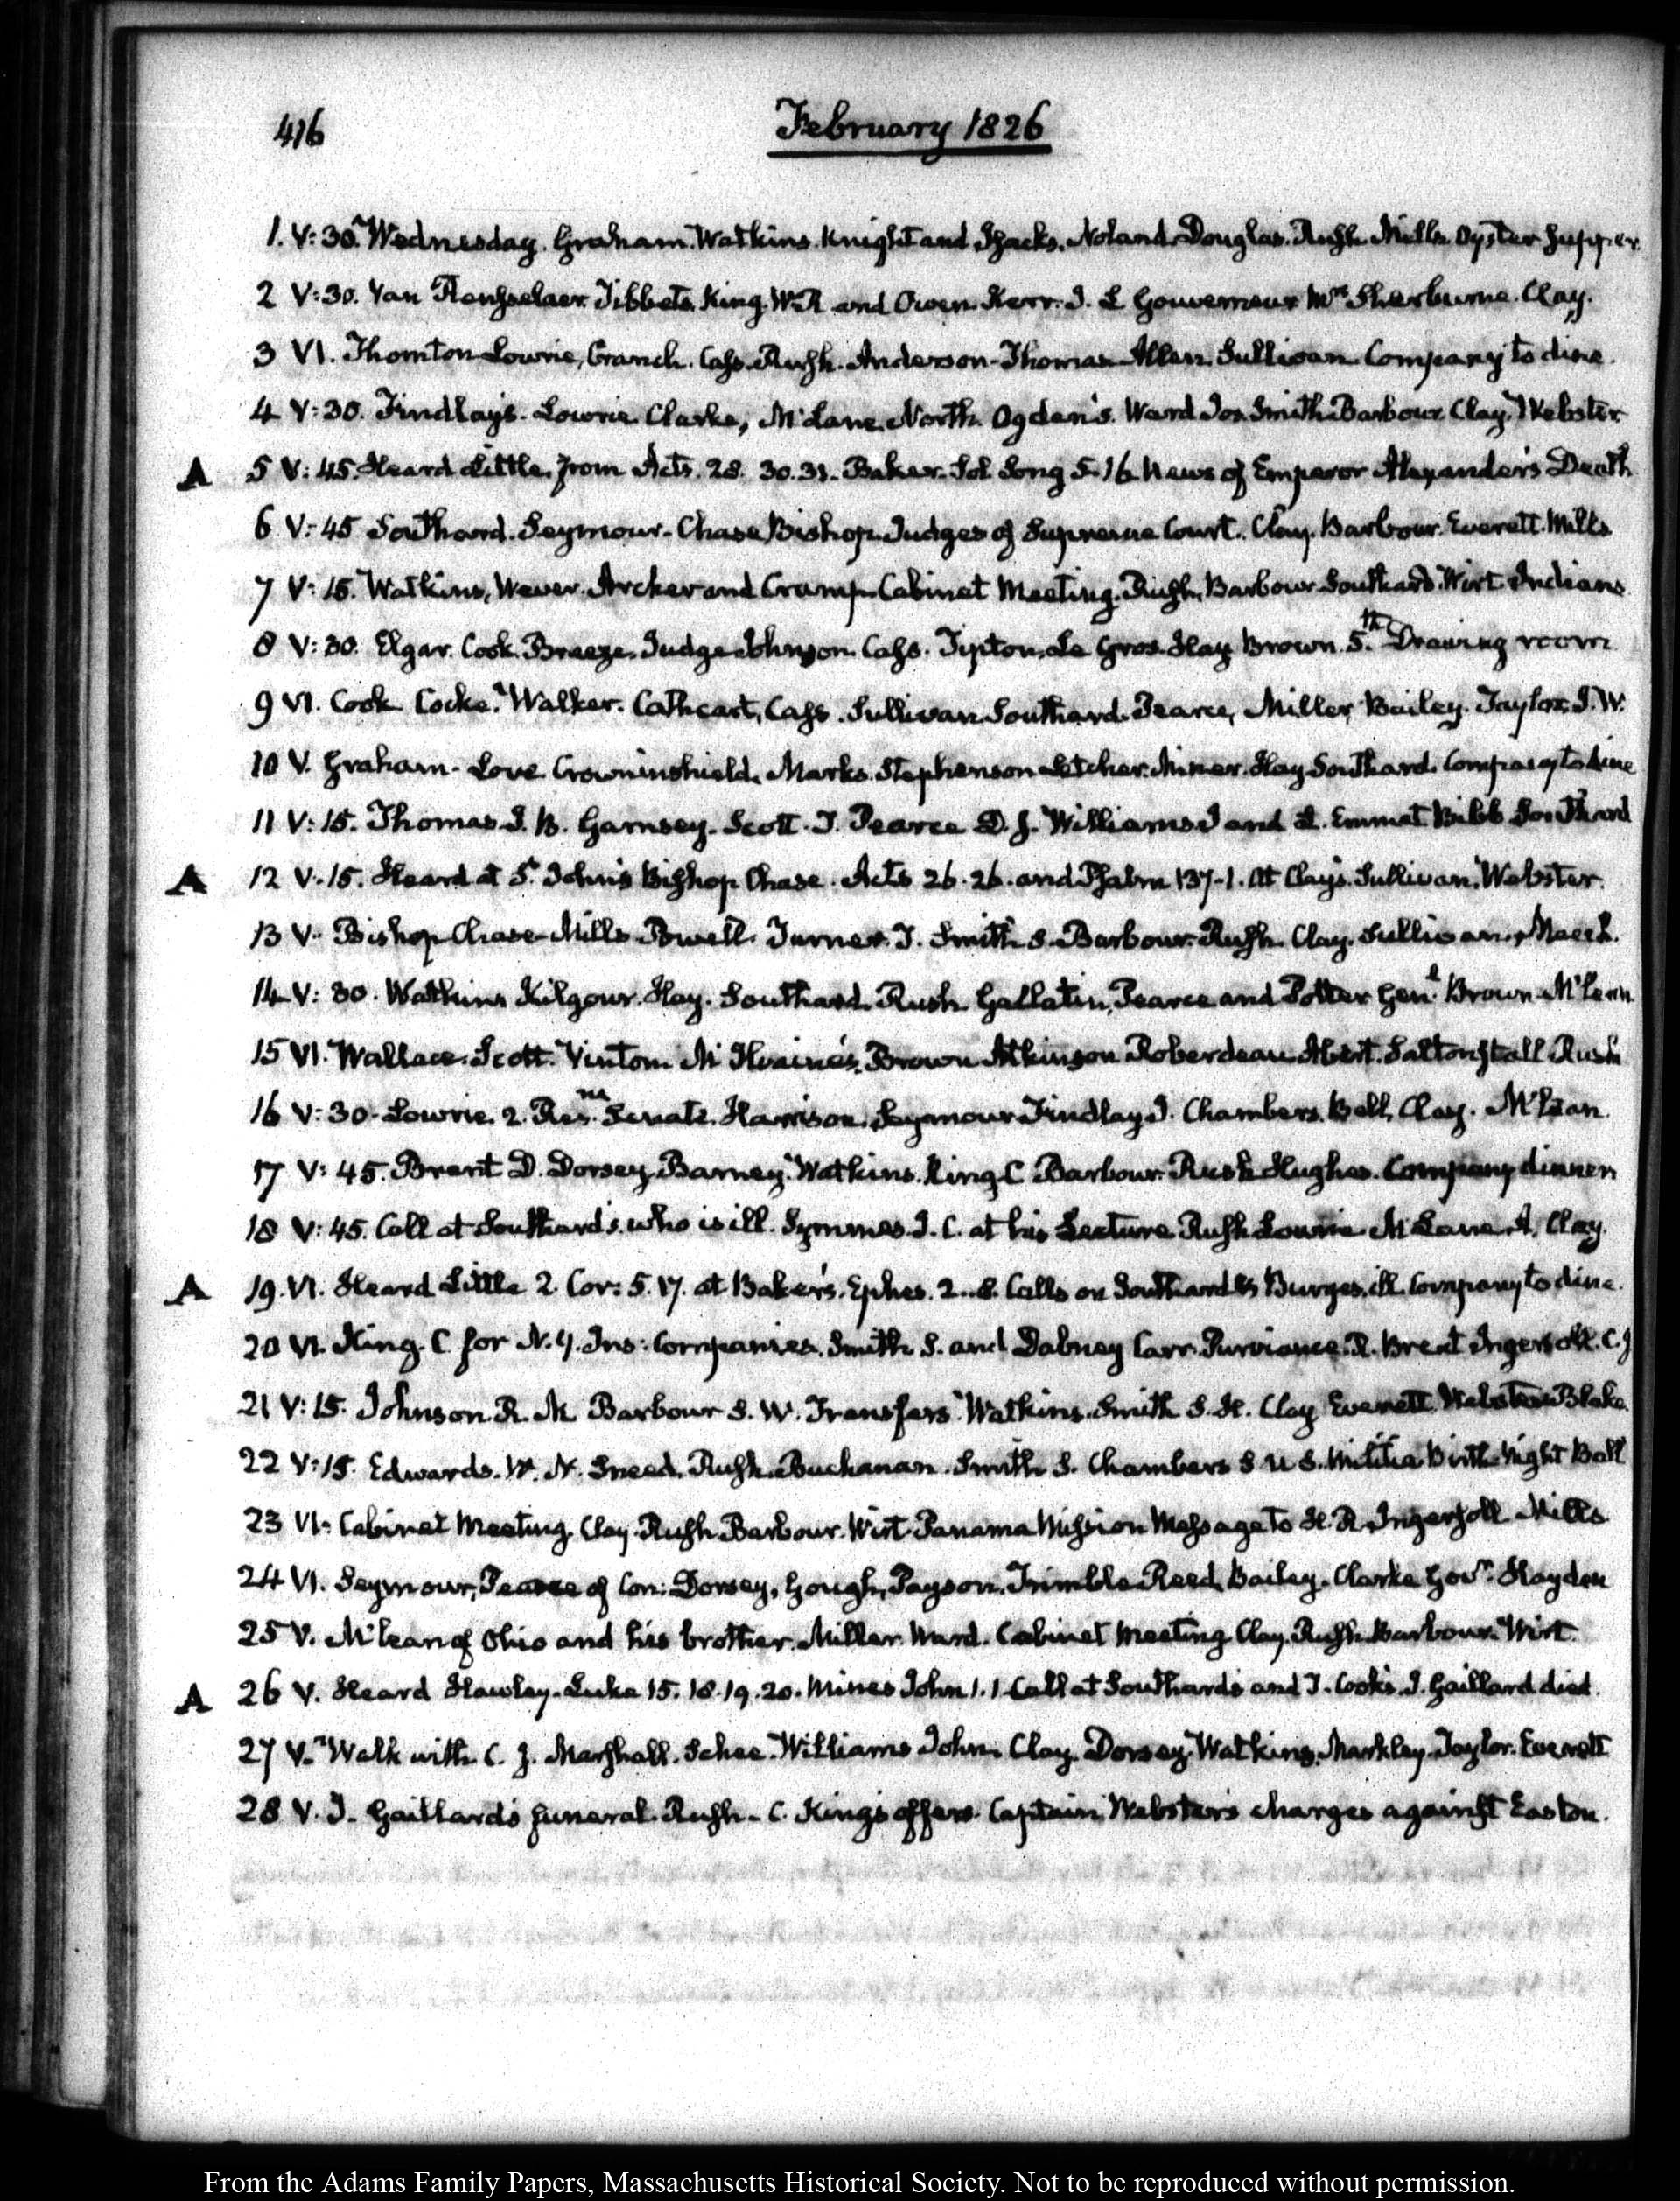 416
February 1826
1. V:30. Wednesday. Graham. Watkins. Knight and Sacks. Noland. Douglas. Rush. Mills. Oyster Supper
2 V:30. Van Rensselaer. Tibbets. King. W.R and Owen. Kerr. J. L Gouverneur Mrs Sherburne. Clay.
3 VI. Thornton Lowrie, Cranch. Cass. Rush. Anderson. Thomas Allen. Sullivan. Company to dine.
4 V:30. Findlay's. Lowrie Clarke, McLane. North. Ogden's. Ward Jos. Smith. Barbour. Clay. Webster
A 5 V:45. Heard Little. from Acts. 28. 30.31. Baker. Sol. Song 5.16 News of Emperor Alexander's Death
6 V:45 Southard. Seymour. Chase Bishop. Judges of Supreme Court. Clay. Barbour. Everett. Mills
7 V:15. Watkins, Wever. Archer and Crump. Cabinet Meeting. Rush, Barbour. Southard. Wirt. Indians
8 V:30. Elgar. Cook. Breeze. Judge Johnson. Cass. Tipton. Le Gros. Hay Brown. 5.th Drawing room
9 VI. Cook Cocke. Walker. Cathcart, Cass. Sullivan. Southard. Pearce, Miller, Bailey. Taylor. J.W.
10 V. Graham. Love. Crowninshield. Marks. Stephenson Letcher. Miner. Hay Southard. Company to dine
11 V:15. Thomas J. B. Garnsey. Scott. J. Pearce D. J. Williams J and L. Emmet Bibb Southard
A 12 V.15. Heard at St. John's Bishop Chase. Acts 26.26. and Psalm 137.1. At Clay's. Sullivan. Webster.
13 V. Bishop Chase. Mills. Powell. Turner. J. Smith S. Barbour. Rush. Clay. Sullivan.
14 V:30. Watkins Kilgour. Hay. Southard. Rush. Gallatin, Pearce and Potter Genl. Brown. McLean
15 VI. Wallace. Scott. Vinton. McIlvaine's. Brown Atkinson Roberdeau Abert. Saltonstall Rush
16 V:30. Lowrie. 2. Resns. Senate. Harrison. Seymour Findlay J. Chambers. Bell, Clay. McLean.
17 V:45. Brent D. Dorsey. Barney. Watkins. King. C Barbour. Rush Hughes. Company dinner
18 V:45. Call at Southard's. who is ill. Symmes. J. C. at his Lecture. Rush Lowrie McLane A. Clay.
A 19. VI. Heard Little 2. Cor: 5. 17. at Baker's. Ephes. 2..8. Calls on Southard & Burges. ill. Company to dine.
20 VI. King. C for N.Y. Ins: Companies. Smith S. and Dabney Carr. Purviance. R. Brent Ingersoll. C.J
21 V:15. Johnson R. M Barbour S. W. Transfers. Watkins. Smith S. H. Clay Everett. Webster Blake.
22 V:15. Edwards. W. N. Sneed. Rush. Buchanan. Smith S. Chambers S U S. Militia Birth-Night Ball
23 VI. Cabinet Meeting. Clay. Rush. Barbour. Wirt. Panama Mission Message to H. R. Ingersoll Mills
24 VI. Seymour, Pearce of Con: Dorsey, Gough, Payson. Trimble. Reed. Bailey. Clarke Govr. Hayden
25 V. McLean of Ohio and his brother. Miller. Ward. Cabinet Meeting. Clay. Rush. Barbour. Wirt.
A 26 V. Heard Hawley. Luke 15. 18.19.20. Mines John 1.1 Call at Southard's and J. Cook's. J. Gaillard died.
27 V. Walk with C. J. Marshall. Schee. Williams John. Clay. Dorsey. Watkins. Markley. Taylor. Everett
28 V. J. Gaillard's funeral. Rush. C. King's offers Captain Webster's charges against Easton.
From the Adams Family Papers, Massachusetts Historical Society. Not to be reproduced without permission.